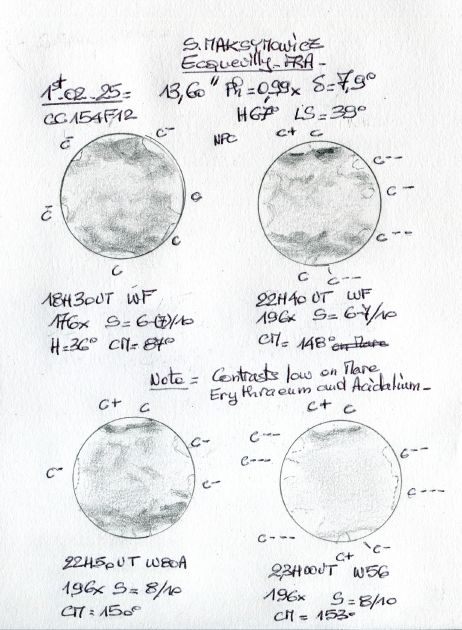 S. MAKSYMOWICZ
Ecquevilly - FRA -
1st - 02 - 25 = 13,60" Ph = 0,99 x δ = 7,9°
CC154F12 H67° LS = 39°
NPC
C+ C
C̄ C-
C--
C-
C̄ C
C--
C
C C C--
18H30UT WF
176x S = 6-(7)/10
H = 36° CM = 87°
22H40UT WF
196x S = 6-7/10
CM = 148°
Note = Contrasts low on Mare
Erythraeum and Acidalium -
C+ C C+ C
C- C---
C--- C--
C- C- C---
C---
C+ C-
22H50UT W80A
196x S = 8/10
CM = 150°
23H00UT W56
196x S = 8/10
CM = 153°